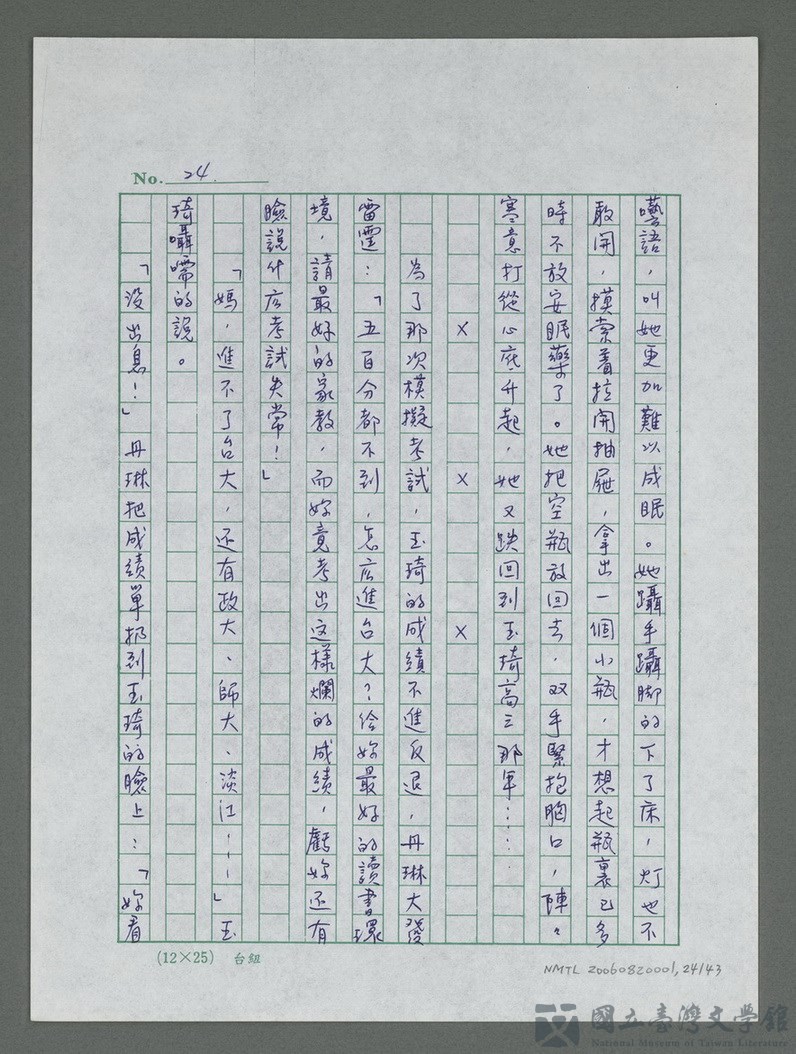 No. 24.
囈語，叫她更加難以成眠。她躡手躡脚的下了床，灯也不
敢開，摸索着拉開抽屜，拿出一個小瓶，才想起瓶裏已多
時不放安眠藥了。她把空瓶放回去，双手緊抱胸口，陣々
寒意打從心底升起，她又跌回到玉琦高三那年……
×　×　×
為了那次模擬考試，玉琦的成績不進反退，丹琳大發
雷霆：「五百分都不到，怎広進台大？给妳最好的讀書環
境，請最好的家教，而妳竟考出這樣爛的成績，虧妳还有
臉說什広考試失常！」
「媽，進不了台大，还有政大、師大、淡江……」玉
琦囁嚅的說。
「没出息！」丹琳把成績單扔到玉琦的臉上：「妳看
(12×25) 台組
NMTL 20060820001, 24/43
國立臺灣文學館
National Museum of Taiwan Literature